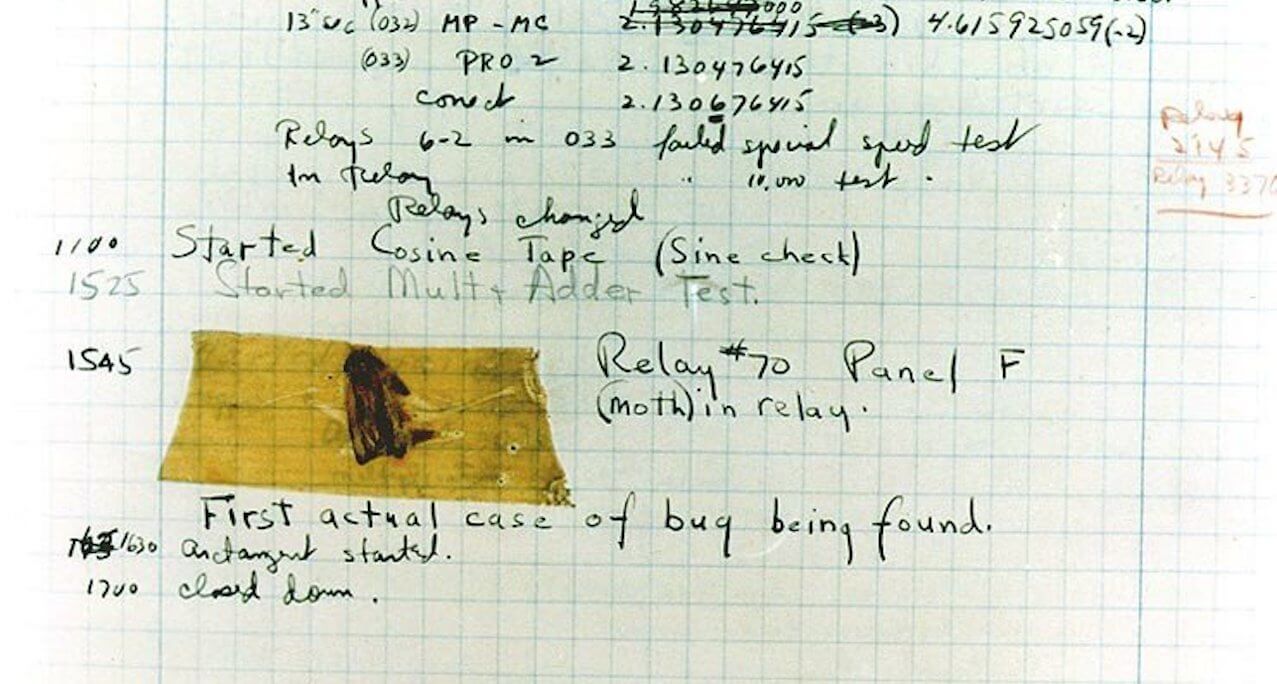 13"uc (032) MP - MC 2.130476415 (-3) 4.615925059(-2)
(033) PRO 2 2.130476415
conect 2.130676415
Relays 6-2 in 033 failed special speed test
In Relay " 10,000 test .
Relays changed
Relay
2145
Relay 3370
1100 Started Cosine Tape (Sine check)
1525 Started Mult + Adder Test.
1545 Relay #70 Panel F
(moth) in relay.
First actual case of bug being found.
1630 arctangent started.
1700 closed down .